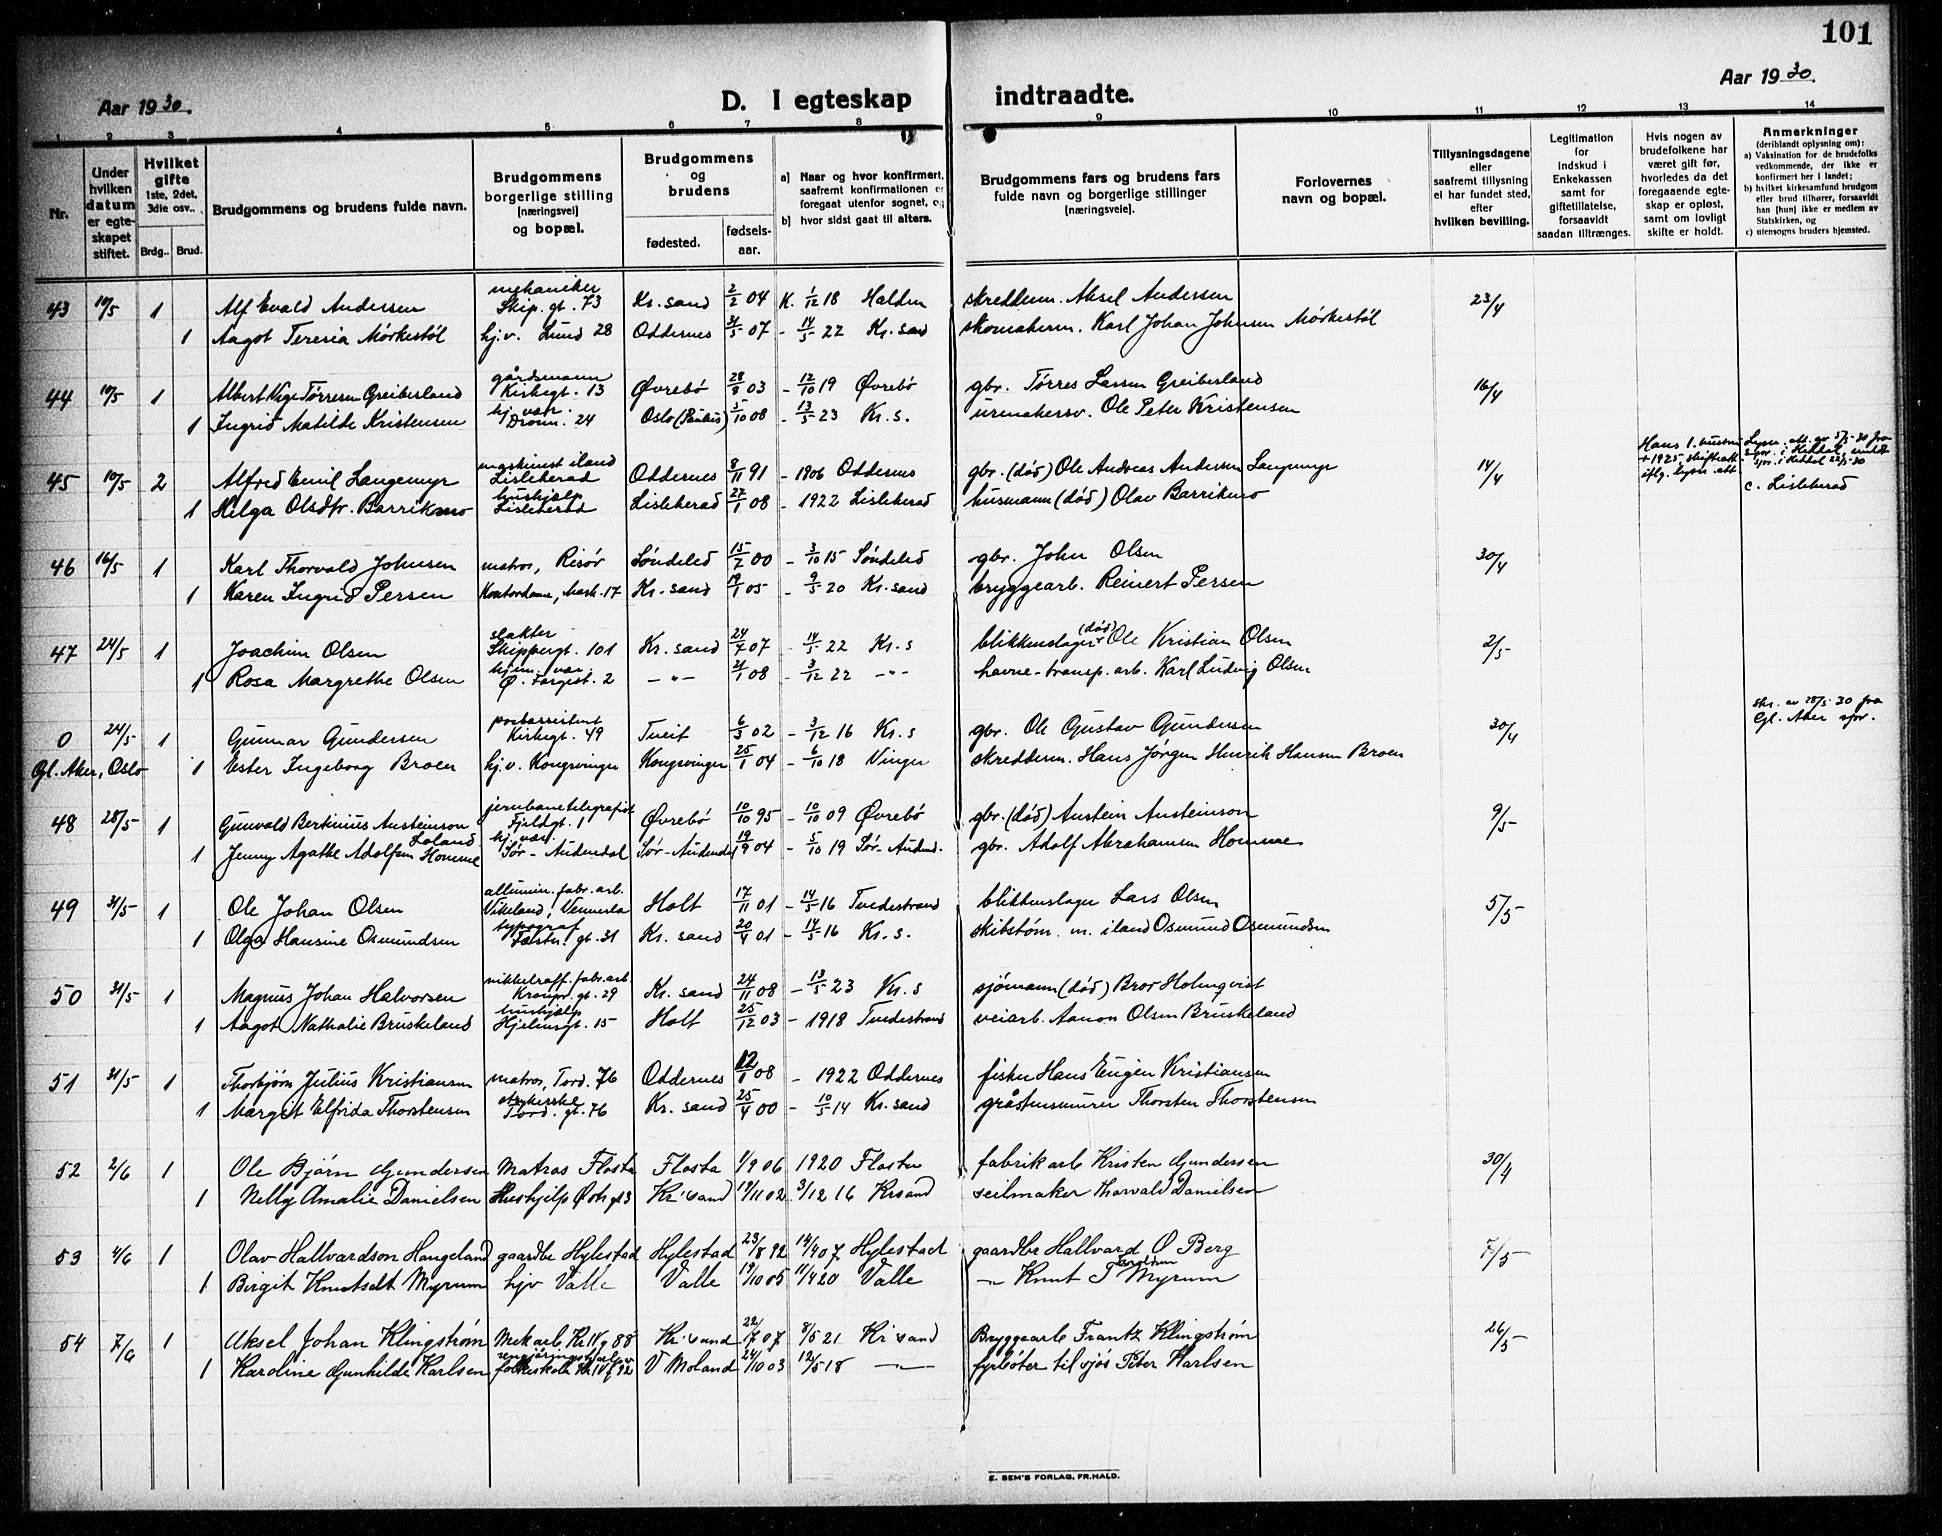 101
Aar 1930.
Aar 1930.
D. I egteskap indtraadte.
1 2 3 4 5 6 7 8 9 10 11 12 13 14
Nr.
Under hvilken datum er egte-skapet stiftet.
Hvilket gifte 1ste, 2det, 3die osv..
Brdg.. Brud.
Brudgommens og brudens fulde navn.
Brudgommens borgerlige stilling [næringsvei] og bopæl.
Brudgommens og brudens
fødested. fødsels-aar.
a) Naar og hvor konfirmert, saafremt konfirmationen er foregaat utenfor sognet, og
b) hvor sidst gaat til alters.
Brudgommens fars og brudens fars fulde navn og borgerlige stillinger [næringsvei].
Forlovernes navn og bopæl.
Tillysningsdagene eller saafremt tillysning ei har fundet sted, efter hvilken bevilling.
Legitimation for indskud i Enkekassen samt for giftetillatelse, forsaavidt saadan tiltrænges.
Hvis nogen av brudefolkene har været gift før, hvorledes da det foregaaende egte-skap er opløst, samt om lovligt skifte er holdt.
Anmerkninger (deriblandt oplysning om):
a) Vaksination for de brudefolks vedkommende, der ikke er konfirmert her i landet;
b) hvilket kirkesamfund brudgom eller brud tilhører, forsaavidt han [hun] ikke er medlem av Statskirken, og
c) utensogns bruders hjemsted.
43 10/5 1 Alf Evald Andersen mekaniker Skip. gt. 73 Kr. sand 2/2 04 K. 1/12 18 Halden skreddern. Aksel Andersen 23/4
1 Aagot Teresia Mørkestøl hj.v. Lund 28 Oddernes 31/5 07 - 14/5 22 Kr. sand skomakerm. Karl Johan Johnsen Mørkestøl
44 10/5 1 Albert Vige Tørresen Greibesland gårdsmann Kirkegt. 13 Øvrebø 28/8 03 - 12/10 19 Øvrebø gbr. Tørres Larsen Greibesland 16/4
1 Ingrid Matilde Kristensen hj. vær. Dronn. 24 Oslo 5/10 08 - 13/5 23 Kr. s. urmakersv. Ole Peter Kristensen
45 10/5 2 Alfred Emil Langemyr maskinist iland Lisleherad Oddernes 8/11 91 - 1906 Oddernes gbr. (død) Ole Andreas Andersen Langemyr 14/4 Hans 1. hustru + 1925 skifteatt iflg. lysn. att
1 Helga Olsdtr. Barrikmo hushjelp Lisleherad Lisleherad 27/1 08 - 1922 Lisleherad husmann (død) Olav Barrikmo c. Lisleherad
46 16/5 1 Karl Thorvald Johnsen matros, Risør Søndeled 15/2 00 - 3/10 15 Søndeled gbr. John Olsen 30/4
1 Karen Ingrid Persen Kontordame, Mark. 17 Kr. sand 19/1 05 - 9/5 20 Kr. sand bryggearb. Reinert Persen
47 24/5 1 Joachim Olsen slakter Skippergt. 101 Kr. sand 24/7 07 - 14/5 22 Kr. s blikkenslager (død) Ole Kristian Olsen 2/5
1 Rosa Margrethe Olsen hjem. vær. Ø. Torgest. 2 - " - 21/1 08 - 3/12 22 - " - havne-transp. arb. Karl Ludvig Olsen
0 24/5 1 Gunnar Gundersen postassistent Kirkegt. 49 Tveit 6/3 02 - 3/12 16 Kr. s gbr. Ole Gustav Gundersen 30/4 skr. av 28/5-30 fra Gl. Aker spr.
Gl. Aker, Oslo 1 Ester Ingeborg Broen hj.v. Kongsvinger Kongsvinger 25/1 04 - 6/10 18 Vinger skreddern. Hans Jørgen Henrik Hansen Broen
48 28/5 1 Gunvald Bertinius Austeinson Loland jernbanetelegrafist Fjeldgt. 1 Øvrebø 10/10 95 - 10/10 09 Øvrebø gbr. (død) Austein Austeinson 9/5
1 Jenny Agathe Adolfsen Homme hj. vær. Sør-Audnedal Sør-Audnedal 19/9 04 - 5/10 19 Sør-Audned. gbr. Adolf Abrahamsen Homme
49 31/5 1 Ole Johan Olsen allumin. fabr. arb. Vikeland, Vennesla Holt 17/11 01 - 14/5 16 Tvedestrand blikkenslager Lars Olsen 5/5
1 Olga Hansine Osmundsen typograf Fæstn. gt. 31 Kr. sand 20/4 01 - 14/5 16 Kr. s. skibstøm. m. iland Osmund Osmundsen
50 31/5 1 Magnus Johan Halvorsen nikkelraff. fabr. arb Kronpr. gt. 29 Kr. sand 24/11 08 - 13/5 23 Kr. s sjømann (død) Bror Holmqvist
1 Aagot Nathalie Bruskeland hushjelp Hjelmsgt. 15 Holt 25/12 03 - 1918 Tvedestrand veiarb. Aanon Olsen Bruskeland
51 31/5 1 Thorbjørn Julius Kristiansen matros, Tord. 76 Oddernes 12/1 08 - 1922 Oddernes fisker Hans Eugen Kristiansen
1 Margit Elfrida Thorstensen strykerske Tord. gt. 76 Kr. sand 25/4 00 - 10/5 14 Kr. sand gråstensmurer Thorsten Thorstensen
52 2/6 1 Ole Bjørn Gundersen Matros Flosta Flosta 1/9 06 1920 Flosta fabrik arb Kristen Gundersen 30/4
1 Nelly Amalie Danielsen Hushjelp Kr'sand 19/11 02 3/12 16 Krsand seilmaker Thorvald Danielsen
53 4/6 1 Olav Hallvardson Haugeland gaardbr Hylestad Hylestad 23/8 92 14/4 07 Hylestad gaardbr Hallvard O Berg 7/5
1 Birgit Knutsdt Myrum hjv Valle Valle 19/10 05 11/4 20 Valle - " - Knut T Myrum
54 7/6 1 Aksel Johan Klingstrøm Mek arb Kr IV g 88 Kr'sand 22/7 07 8/5 21 Kr'sand Bryggearb Frantz Klingstrøm 26/5
1 Karoline Gunhilde Karlsen folkeskole Kr IV g 92 V Moland 24/10 03 12/5 18 - " - fyrbøter til sjøs Peter Karlsen
E. SEM'S FORLAG, FR.HALD.